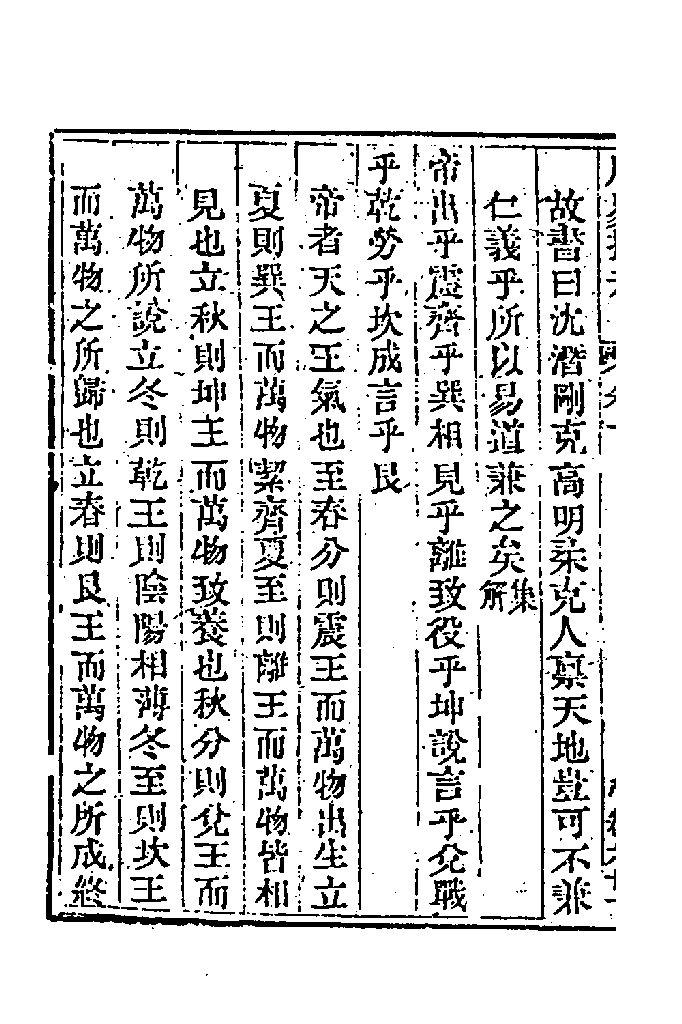 故書曰沈潛剛克高明柔克人禀天地豈可不兼
仁義乎所以易道兼之矣集解
帝出乎震齊乎巽相見乎離致役乎坤說言乎兌戰
乎乾勞乎坎成言乎艮
帝者天之王氣也至春分則震王而萬物出生立
夏則巽王而萬物絜齊夏至則離王而萬物皆相
見也立秋則坤王而萬物致養也秋分則兌王而
萬物所說立冬則乾王則陰陽相薄冬至則坎王
而萬物之所歸也立春則艮王而萬物之所成終